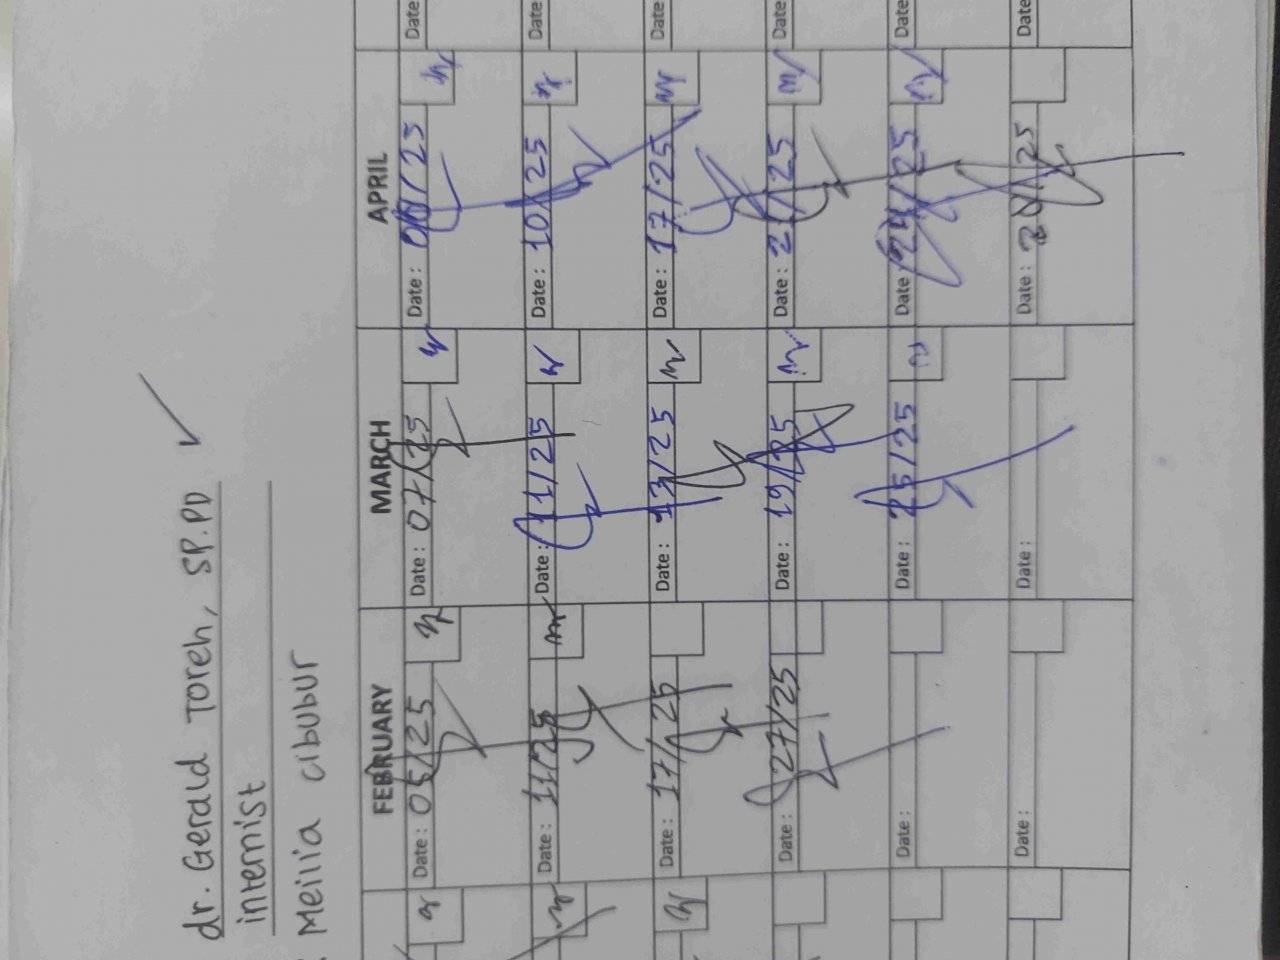 dr. Gerald Toreh, SP.PD
internist
: Meilia cibubur
FEBRUARY MARCH APRIL
Date : 05/25 Date : 07/25 Date : /25 Date
Date : 11/25 Date : 11/25 Date : 10/25 Date
Date : 17/25 Date : 13/25 Date : 17/25 Date
Date : 27/25 Date : 19/25 Date : 21/25 Date
Date : Date : 25/25 Date : 24/25 Date
Date : Date : Date : /25 Date